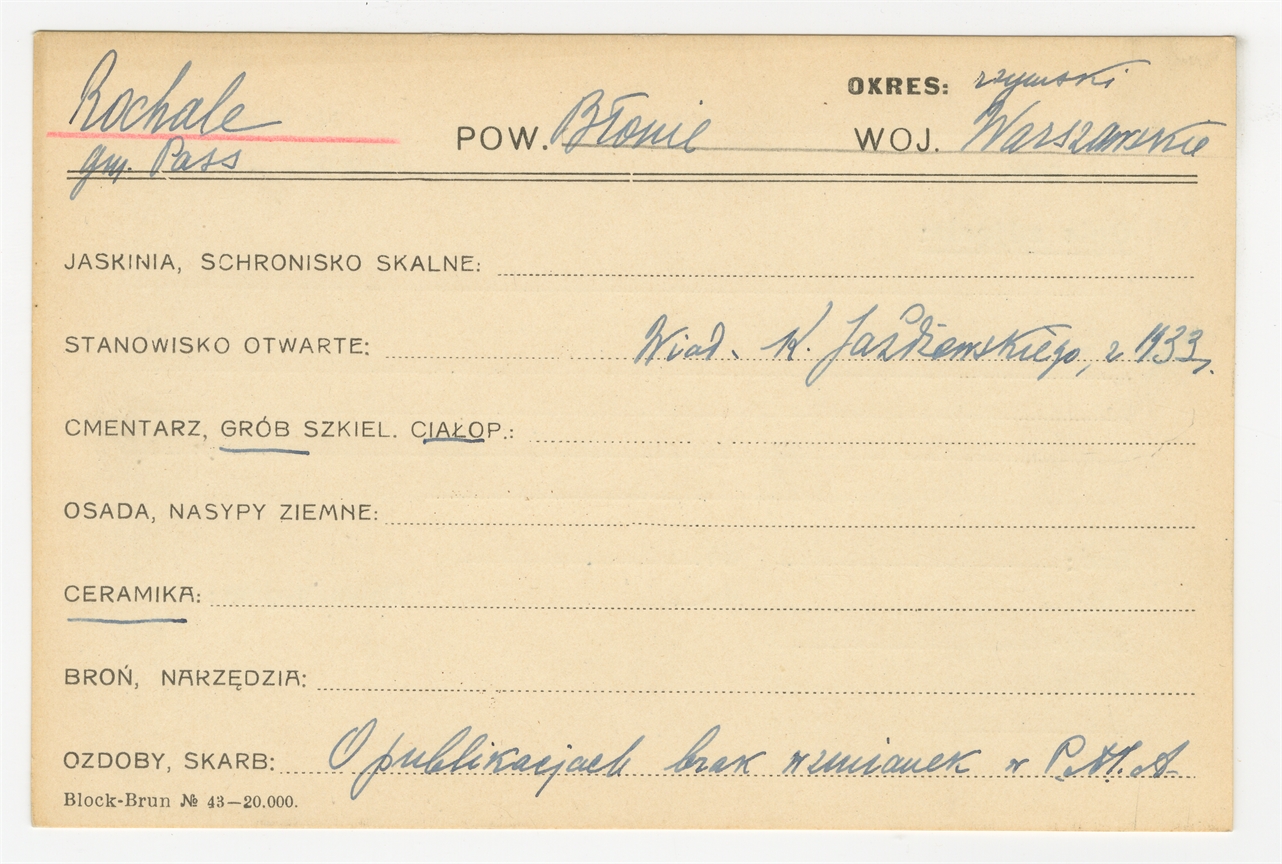 Rochale OKRES: rzymski
gm. Pass POW. Błonie WOJ. Warszawskie
JASKINIA, SCHRONISKO SKALNE:
STANOWISKO OTWARTE: Wiad. K. Jażdżewskiego, z 1933 r.
CMENTARZ, GRÓB SZKIEL. CIAŁOP.:
OSADA, NASYPY ZIEMNE:
CERAMIKA:
BROŃ, NARZĘDZIA:
OZDOBY, SKARB: O publikacjach brak wzmianek w P.M.A.
Block-Brun № 43—20.000.